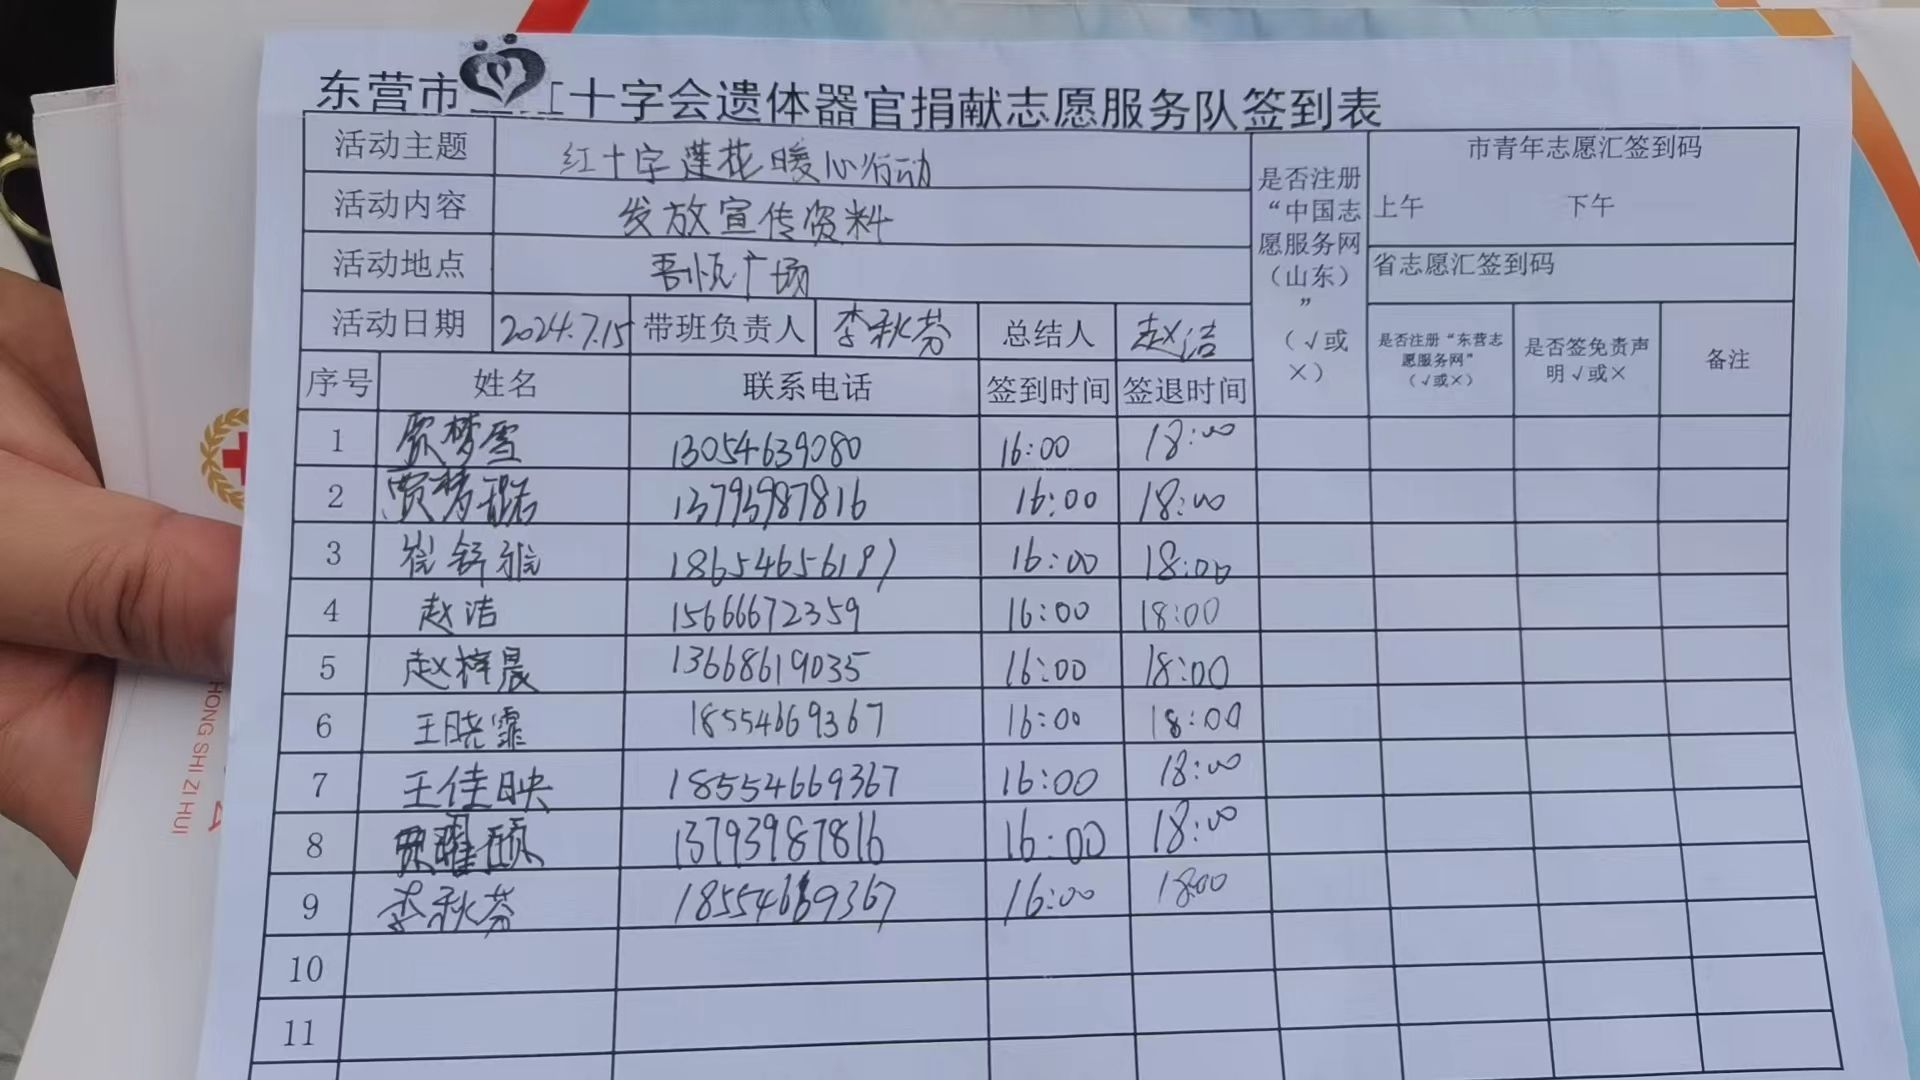 东营市 红十字会遗体器官捐献志愿服务队签到表
活动主题 红十字莲花暖心行动
活动内容 发放宣传资料
活动地点 吾悦广场
活动日期 2024.7.15 带班负责人 李秋芬 总结人 赵洁
是否注册
“中国志
愿服务网
（山东）
”
（√或
×）
市青年志愿汇签到码
上午 下午
省志愿汇签到码
是否注册“东营志
愿服务网”
（√或×）
是否签免责声
明√或×
备注
序号 姓名 联系电话 签到时间 签退时间
1 贾梦雪 13054639080 16:00 18:00
2 贾梦 13793987816 16:00 18:00
3 崔舒雅 18654656197 16:00 18:00
4 赵洁 15666672359 16:00 18:00
5 赵梓晨 13668619035 16:00 18:00
6 王晓霏 18554669367 16:00 18:00
7 王佳映 18554669367 16:00 18:00
8 贾耀硕 13793987816 16:00 18:00
9 李秋芬 18554669367 16:00 18:00
10
11
HONG SHI ZI HUI